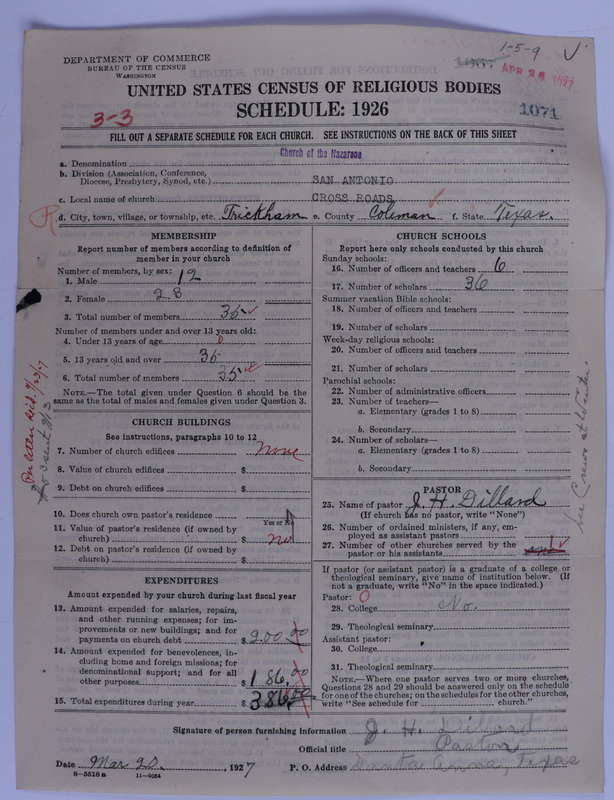 1-5-9
DEPARTMENT OF COMMERCE
BUREAU OF THE CENSUS
WASHINGTON
UNITED STATES CENSUS OF RELIGIOUS BODIES
SCHEDULE: 1926
3-3
1071
FILL OUT A SEPARATE SCHEDULE FOR EACH CHURCH. SEE INSTRUCTIONS ON THE BACK OF THIS SHEET
a. Denomination Church of the Nazarene
b. Division (Association, Conference, Diocese, Presbytery, Synod, etc.) SAN ANTONIO
c. Local name of church CROSS ROADS
d. City, town, village, or township, etc. Trickham e. County Coleman f. State Texas.
MEMBERSHIP
Report number of members according to definition of
member in your church
Number of members, by sex:
1. Male 12
2. Female 23
3. Total number of members 35
Number of members under and over 13 years old:
4. Under 13 years of age 0
5. 13 years old and over 35
6. Total number of members 35
NOTE.—The total given under Question 6 should be the
same as the total of males and females given under Question 3.
CHURCH BUILDINGS
See instructions, paragraphs 10 to 12
7. Number of church edifices None
8. Value of church edifices $
9. Debt on church edifices $
10. Does church own pastor's residence
Yes or No
11. Value of pastor's residence (if owned by
church) $ no
12. Debt on pastor's residence (if owned by
church) $
EXPENDITURES
Amount expended by your church during last fiscal year
13. Amount expended for salaries, repairs,
and other running expenses; for im-
provements or new buildings; and for
payments on church debt $ 200.00
14. Amount expended for benevolences, in-
cluding home and foreign missions; for
denominational support; and for all
other purposes $ 186.00
15. Total expenditures during year $ 386.00
CHURCH SCHOOLS
Report here only schools conducted by this church
Sunday schools:
16. Number of officers and teachers 6
17. Number of scholars 36
Summer vacation Bible schools:
18. Number of officers and teachers
19. Number of scholars
Week-day religious schools:
20. Number of officers and teachers
21. Number of scholars
Parochial schools:
22. Number of administrative officers
23. Number of teachers—
a. Elementary (grades 1 to 8)
b. Secondary
24. Number of scholars—
a. Elementary (grades 1 to 8)
b. Secondary
PASTOR
25. Name of pastor J. H. Dillard
(If church has no pastor, write "None")
26. Number of ordained ministers, if any, em-
ployed as assistant pastors
27. Number of other churches served by the
pastor or his assistants 1
If pastor (or assistant pastor) is a graduate of a college or
theological seminary, give name of institution below. (If
not a graduate, write "No" in the space indicated.)
Pastor: 0
28. College No.
29. Theological seminary
Assistant pastor:
30. College
31. Theological seminary
NOTE.—Where one pastor serves two or more churches,
Questions 28 and 29 should be answered only on the schedule
for one of the churches; on the schedules for the other churches,
write "See schedule for church."
Signature of person furnishing information J. H. Dillard
Official title Pastor
Date Mar 20, 1927 P. O. Address Santa Anna, Texas
8—5518a 11—9064